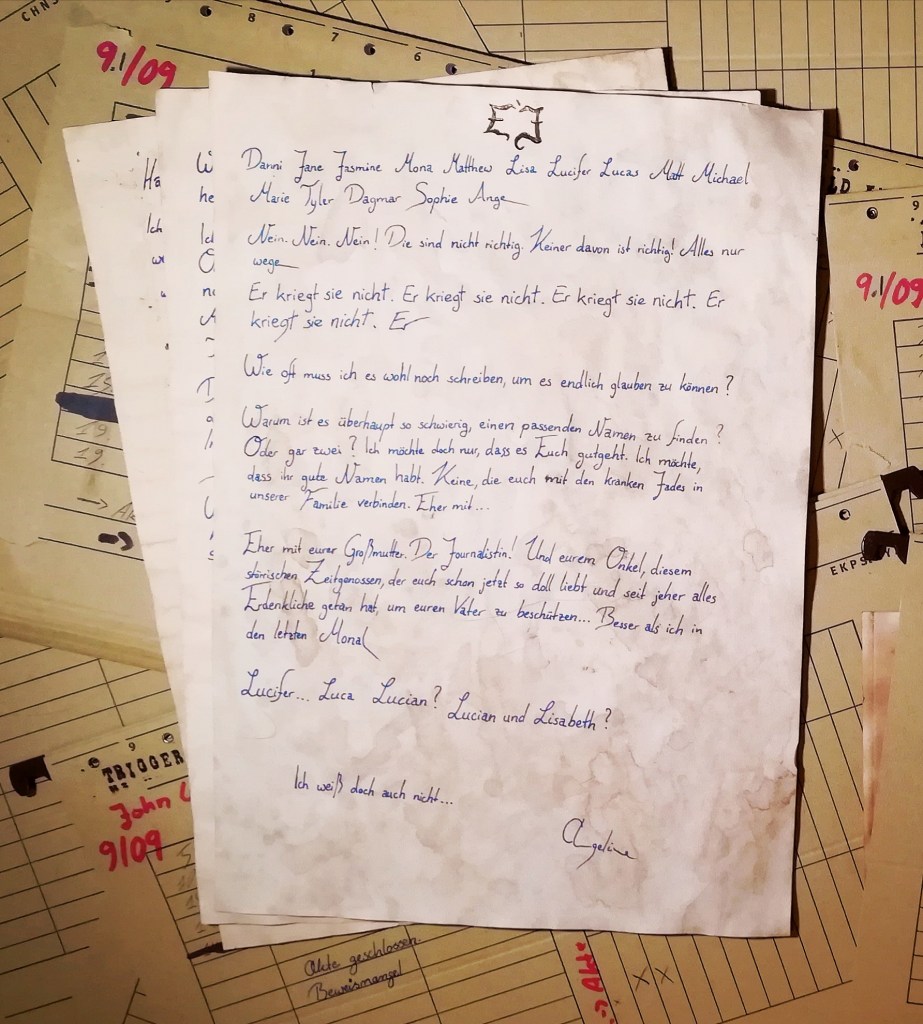 CHNS
8
7
6
9.1/09
Danni Jane Jasmine Mona Matthew Lisa Lucifer Lucas Matt Michael
Marie Tyler Dagmar Sophie Ange
Nein. Nein. Nein! Die sind nicht richtig. Keiner davon ist richtig! Alles nur
wege
Er kriegt sie nicht. Er kriegt sie nicht. Er kriegt sie nicht. Er
kriegt sie nicht. Er
Wie oft muss ich es wohl noch schreiben, um es endlich glauben zu können?
Warum ist es überhaupt so schwierig, einen passenden Namen zu finden?
Oder gar zwei? Ich möchte doch nur, dass es Euch gutgeht. Ich möchte,
dass ihr gute Namen habt. Keine, die euch mit den kranken Jades in
unserer Familie verbinden. Eher mit...
Eher mit eurer Großmutter. Der Journalistin! Und eurem Onkel, diesem
störrischen Zeitgenossen, der euch schon jetzt so doll liebt und seit jeher alles
Erdenkliche getan hat, um euren Vater zu beschützen... Besser als ich in
den letzten Monat
Lucifer... Luca Lucian? Lucian und Lisabeth?
Ich weiß doch auch nicht...
Angeline
Ha
Ich
W
he
9
9.1/09
EKPS
9
TRIGGER
John
9/09
19.
19.
Akte geschlossen
Beweismangel
Akte